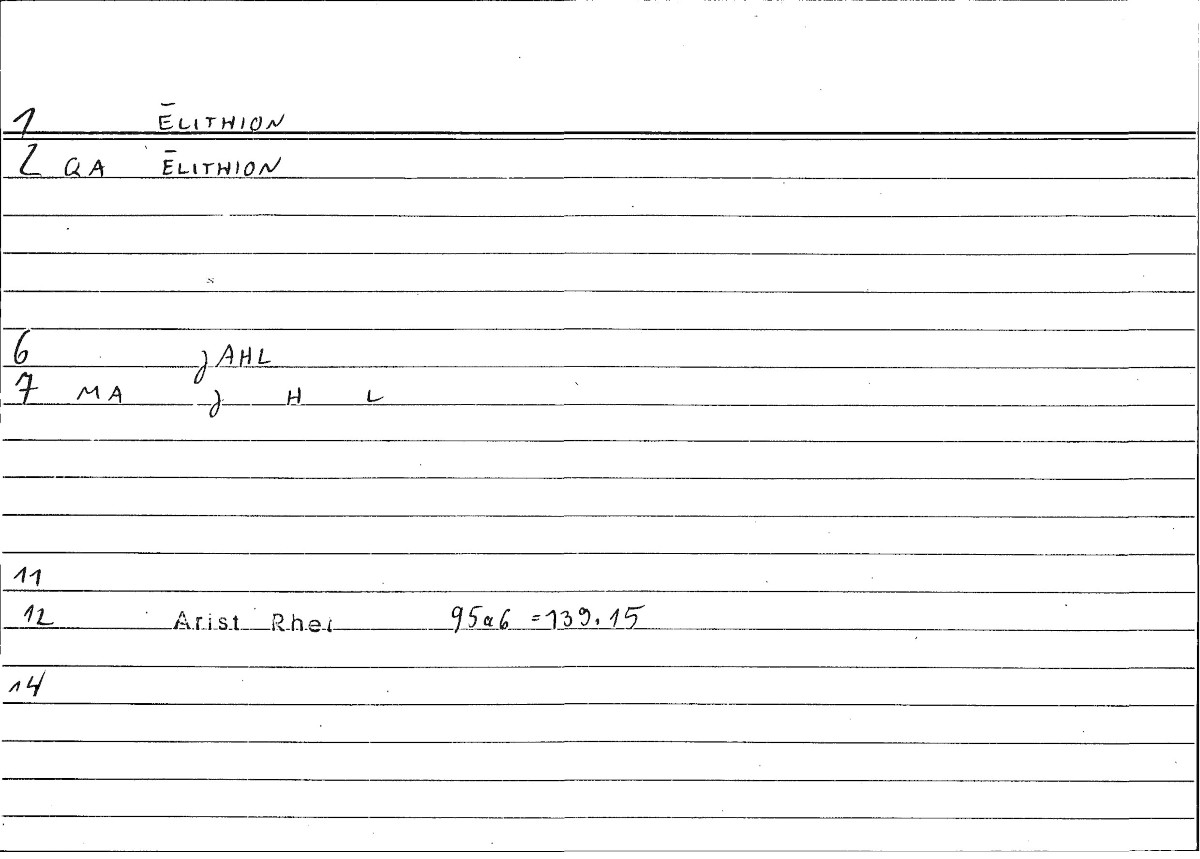 1 ĒLITHION
2 QA ĒLITHION
6 JAHL
7 MA J H L
11
12 Arist Rhet 95a6 =139.15
14